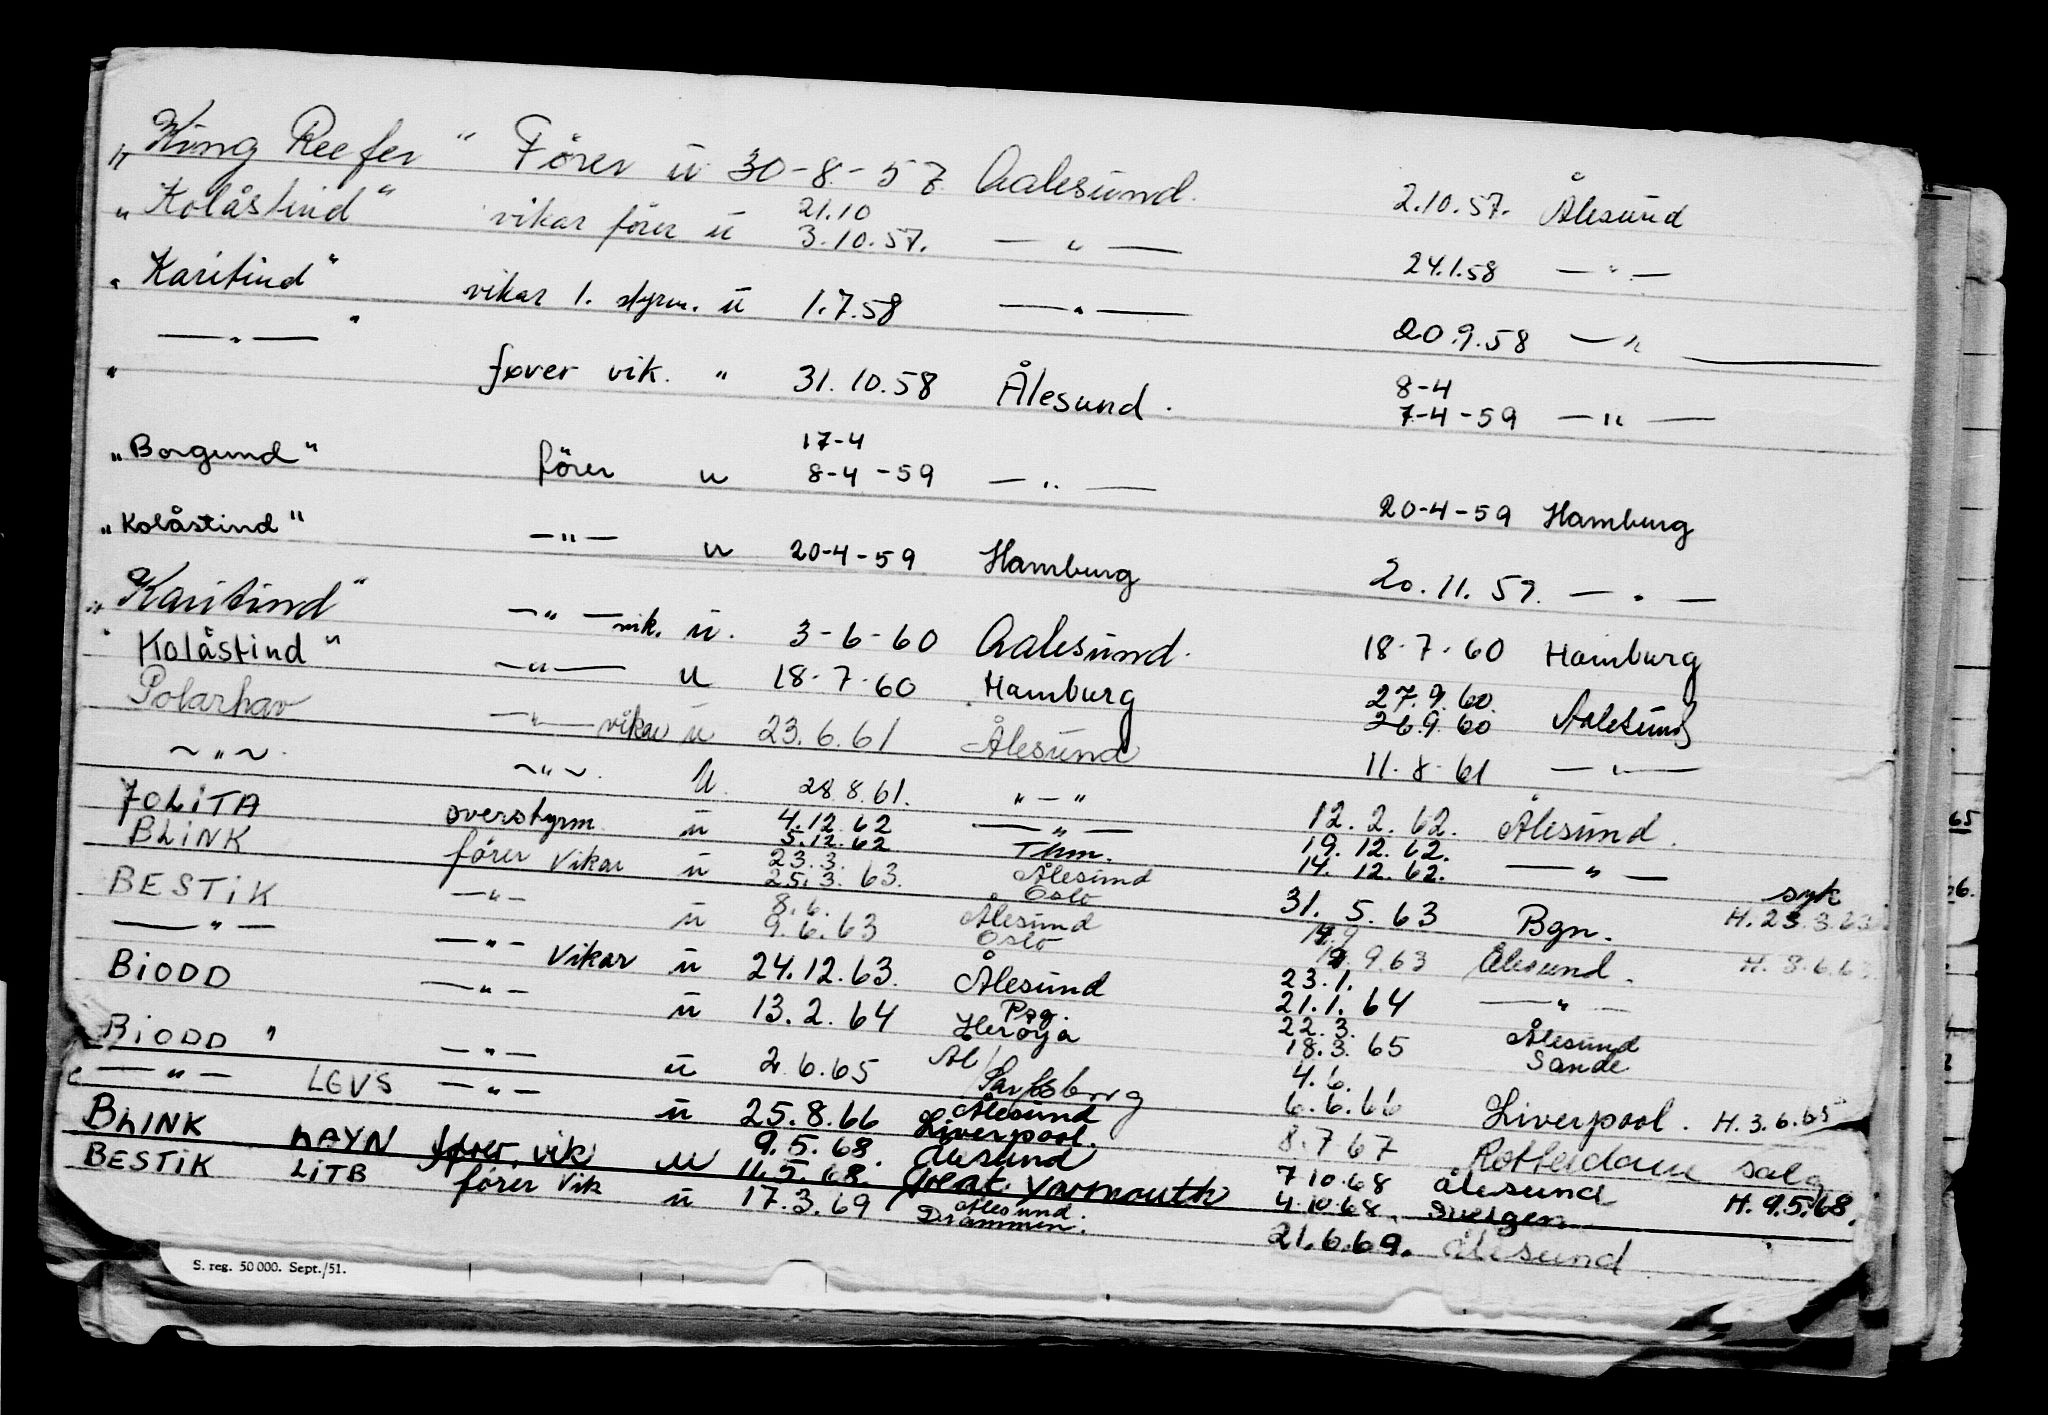 „King Reefer“ Förer ü 30-8-57 Aalesund. 2.10.57. Ålesund
„Kolåstind“ vikar förer ü 21.10 3.10.57. — „ — 24.1.58 — „ —
„Karitind“ vikar 1. styrm. ü 1.7.58 — „ — 20.9.58 — „ —
— „ — “ fører vik. " 31.10.58 Ålesund. 8-4 7-4-59 — „ —
„Borgund“ förer u 17-4 8-4-59 — „ — 20-4-59 Hamburg
„Kolåstind“ — „ — u 20-4-59 Hamburg 20.11.59. — „ —
„Karitind“ — „ — vik. ü. 3-6-60 Aalesund. 18-7-60 Hamburg
"Kolåstind" — „ — u 18-7-60 Hamburg 27.9.60. 26.9.60 Aalesund
Polarhav — „ — vikar ü 23.6.61 Ålesund 11.8.61 — „ —
~ „ ~ ~ „ ~ U. 28.8.61. „ — „ 12.2.62. Ålesund.
JOLITA overstyrm. ü 4.12.62 5.12.62 — „ — Thm. 19.12.62. 14.12.62. — „ —
BLINK förer Vikar ü 23.3. 25.3.63. Ålesund Oslo 31.5.63 Bgn. syk H. 23.3.63
BESTIK — „ — ü 8.6. 9.6.63 Ålesund Oslo 9.63 Ålesund. H. 8.6.63
— „ — — „ — Vikar ü 24.12.63. Ålesund 23.1. 21.1.64 — „ —
BIODD — „ — ü 13.2.64 Psg. Herøya 22.3. 18.3.65 Ålesund Sande
BIODD " — „ — ü 2.6.65 Al/Sarpsborg 4.6. 6.6.66 Liverpool. H. 3.6.65
— „ — LGVS — „ — ü 25.8.66 Ålesund Liverpool. 8.7.67 Rotterdam salg
BLINK LAYN fører vik u 9.5.68. 11.5.68. Ålesund Great Yarmouth 7.10.68 4.10.68. Ålesund Svelgen H. 9.5.68.
BESTIK LITB förer Vik ü 17.3.69 Ålesund Drammen. 21.6.69. Ålesund
S. reg. 50 000. Sept./51.